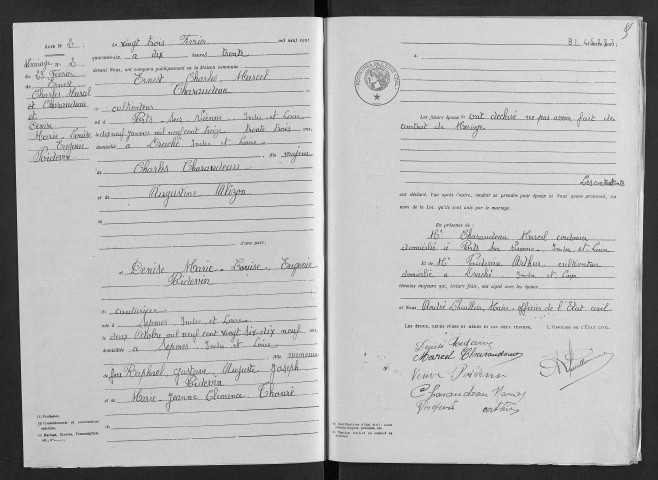 Acte N° 2
Mariage N° 2
du 23 Février
de
Ernest
Charles Marcel
Charaudeau
et
Denise
Marie-Louise
Eugénie
Poidevin
Le vingt trois Février mil neuf cent
quarante-six, à dix heures trente
devant Nous, ont comparu publiquement en la Maison commune :
Ernest Charles, Marcel
Charaudeau
cultivateur
né à Ports sur Vienne, Indre et Loire
le dix neuf janvier mil neuf cent treize trente trois ans,
domicilié à Draché Indre et Loire
fils majeur
de Charles Charaudeau
et de
Augustine Alizon
d'une part,
et Denise Marie-Louise, Eugénie
Poidevin
couturière
née à Sepmes Indre et Loire
le deux Octobre mil neuf cent vingt six, dix neuf ans,
domiciliée à Sepmes Indre et Loire
fille mineure
de feu Raphaël, Gustave, Auguste Joseph
Poidevin
et de
Marie-Jeanne Clémence Thouré
(1) Profession.
Les futurs époux ont déclaré ne pas avoir fait de
contrat de Mariage
Les contractants
ont déclaré, l'un après l'autre, vouloir se prendre pour époux et Nous avons prononcé, au
nom de la Loi, qu'ils sont unis par le mariage.
En présence de :
Mr Charaudeau Marcel
domicilié à Ports sur Vienne, Indre et Loire
Et de Mr Poidevin Arthur, cultivateur
domicilié à Draché Indre et Loire
témoins majeurs qui, lecture faite, ont signé avec les époux
et Nous, André Maire, officier de l'Etat civil
L'Officier de l'État civil,
Marcel Charaudeau
Veuve Poidevin
Charaudeau